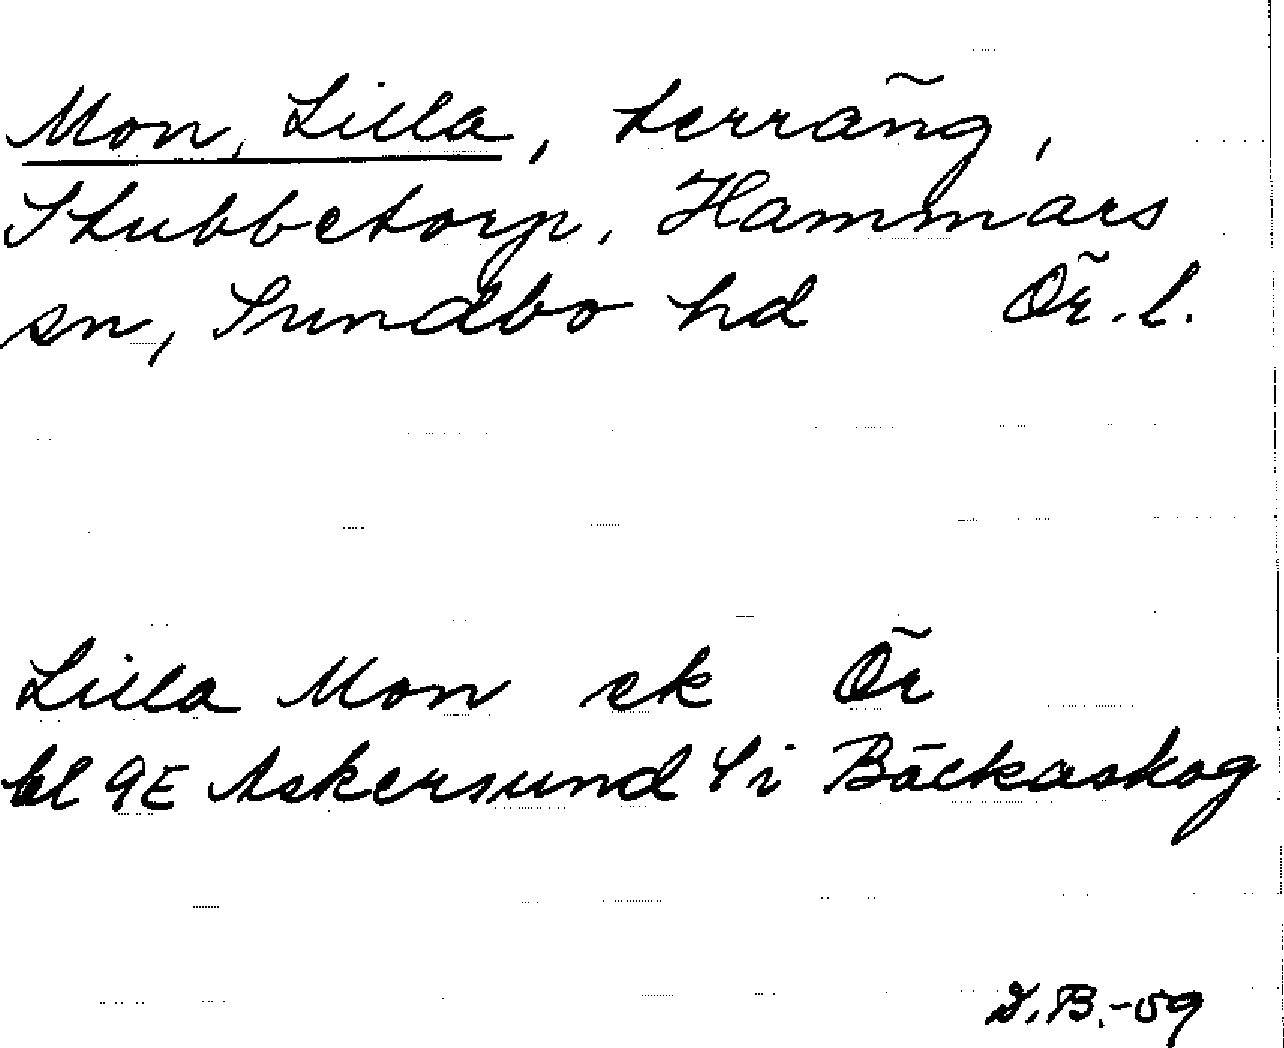 Mon, Lilla, terräng,
Stubbetorp, Hammars
sn, Sundbo hd Ör. l.
Lilla Mon ek Ör
bl 9E Askersund 4i Bäckaskog
D.B.-59